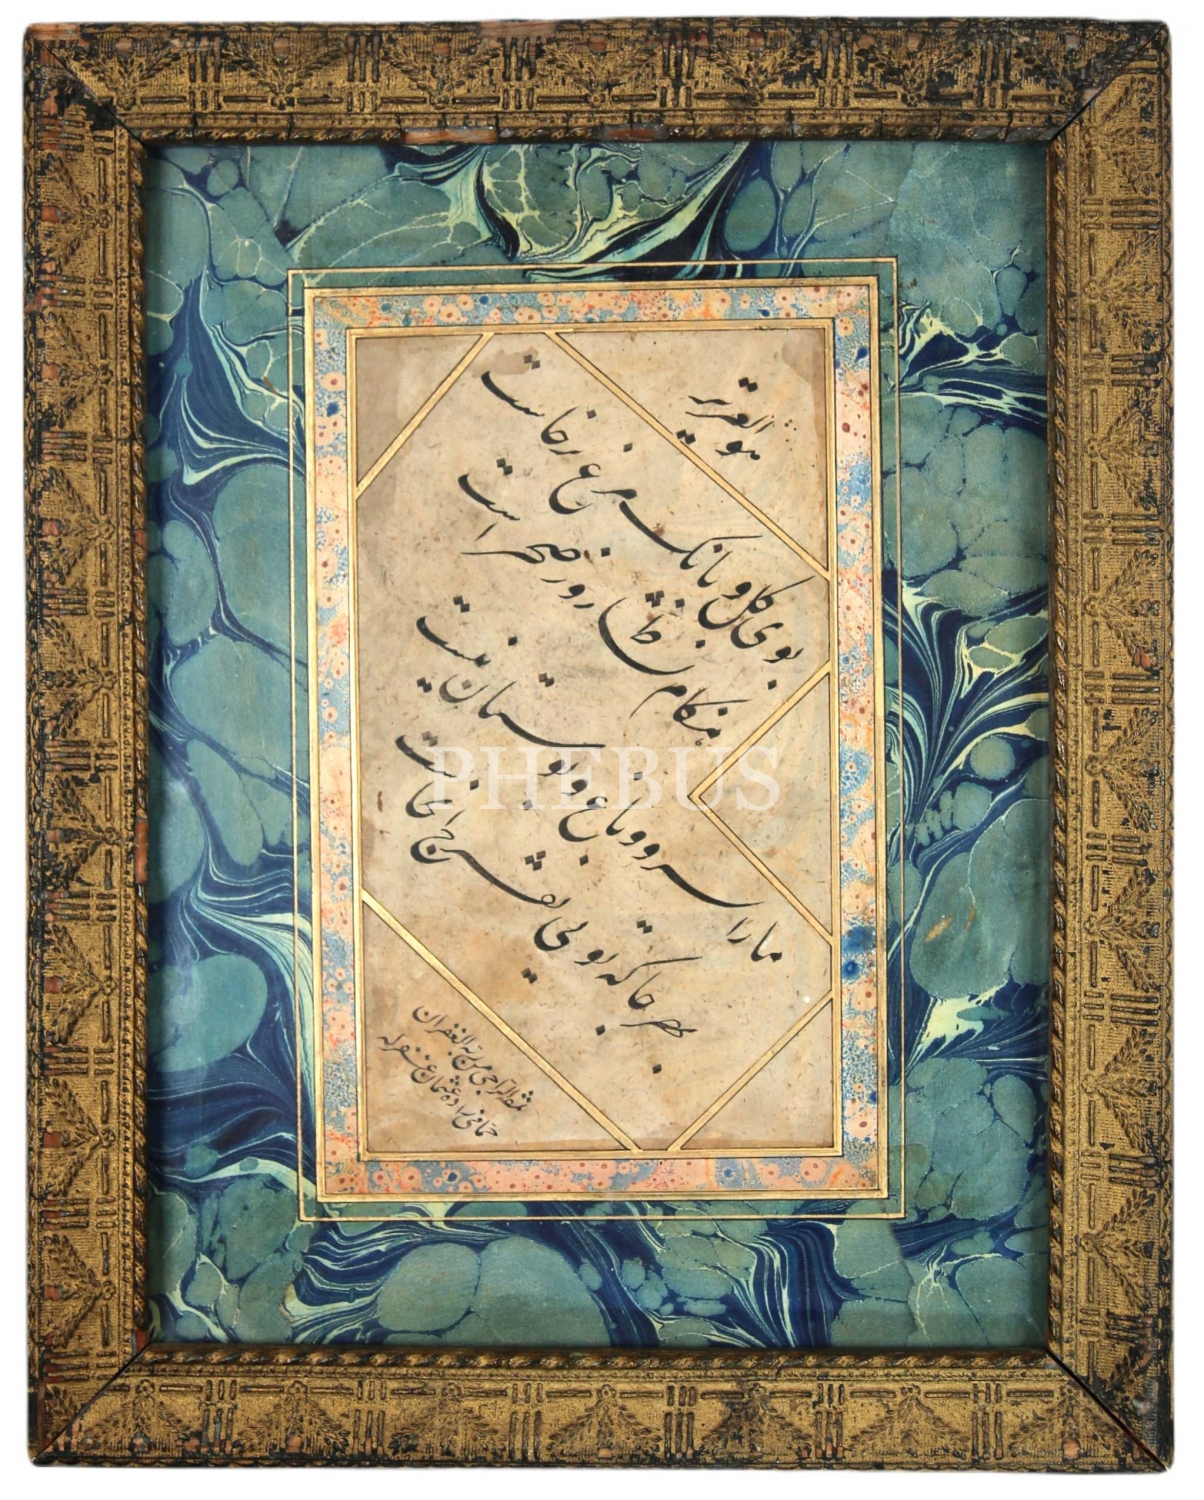 هو العزیز
بوی گل و بانک مرغ برخاست
هنکام نشاط و روز صحراست
ما را سر و و باغ و بوستان نیست
هر جا که تویی تفرج آنجاست
مشقه الراجی من ربه الغفران
حافظ زاده عثمان غفر له
PHEBUS